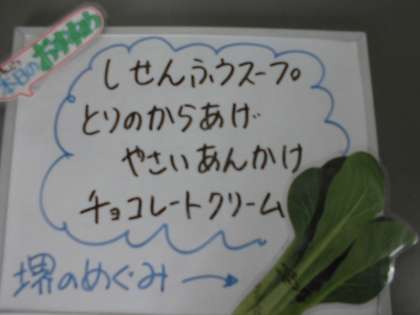 本日のおすすめ
しせんふうスープ。
とりのからあげ
やさいあんかけ
チョコレートクリーム
堺のめぐみ→